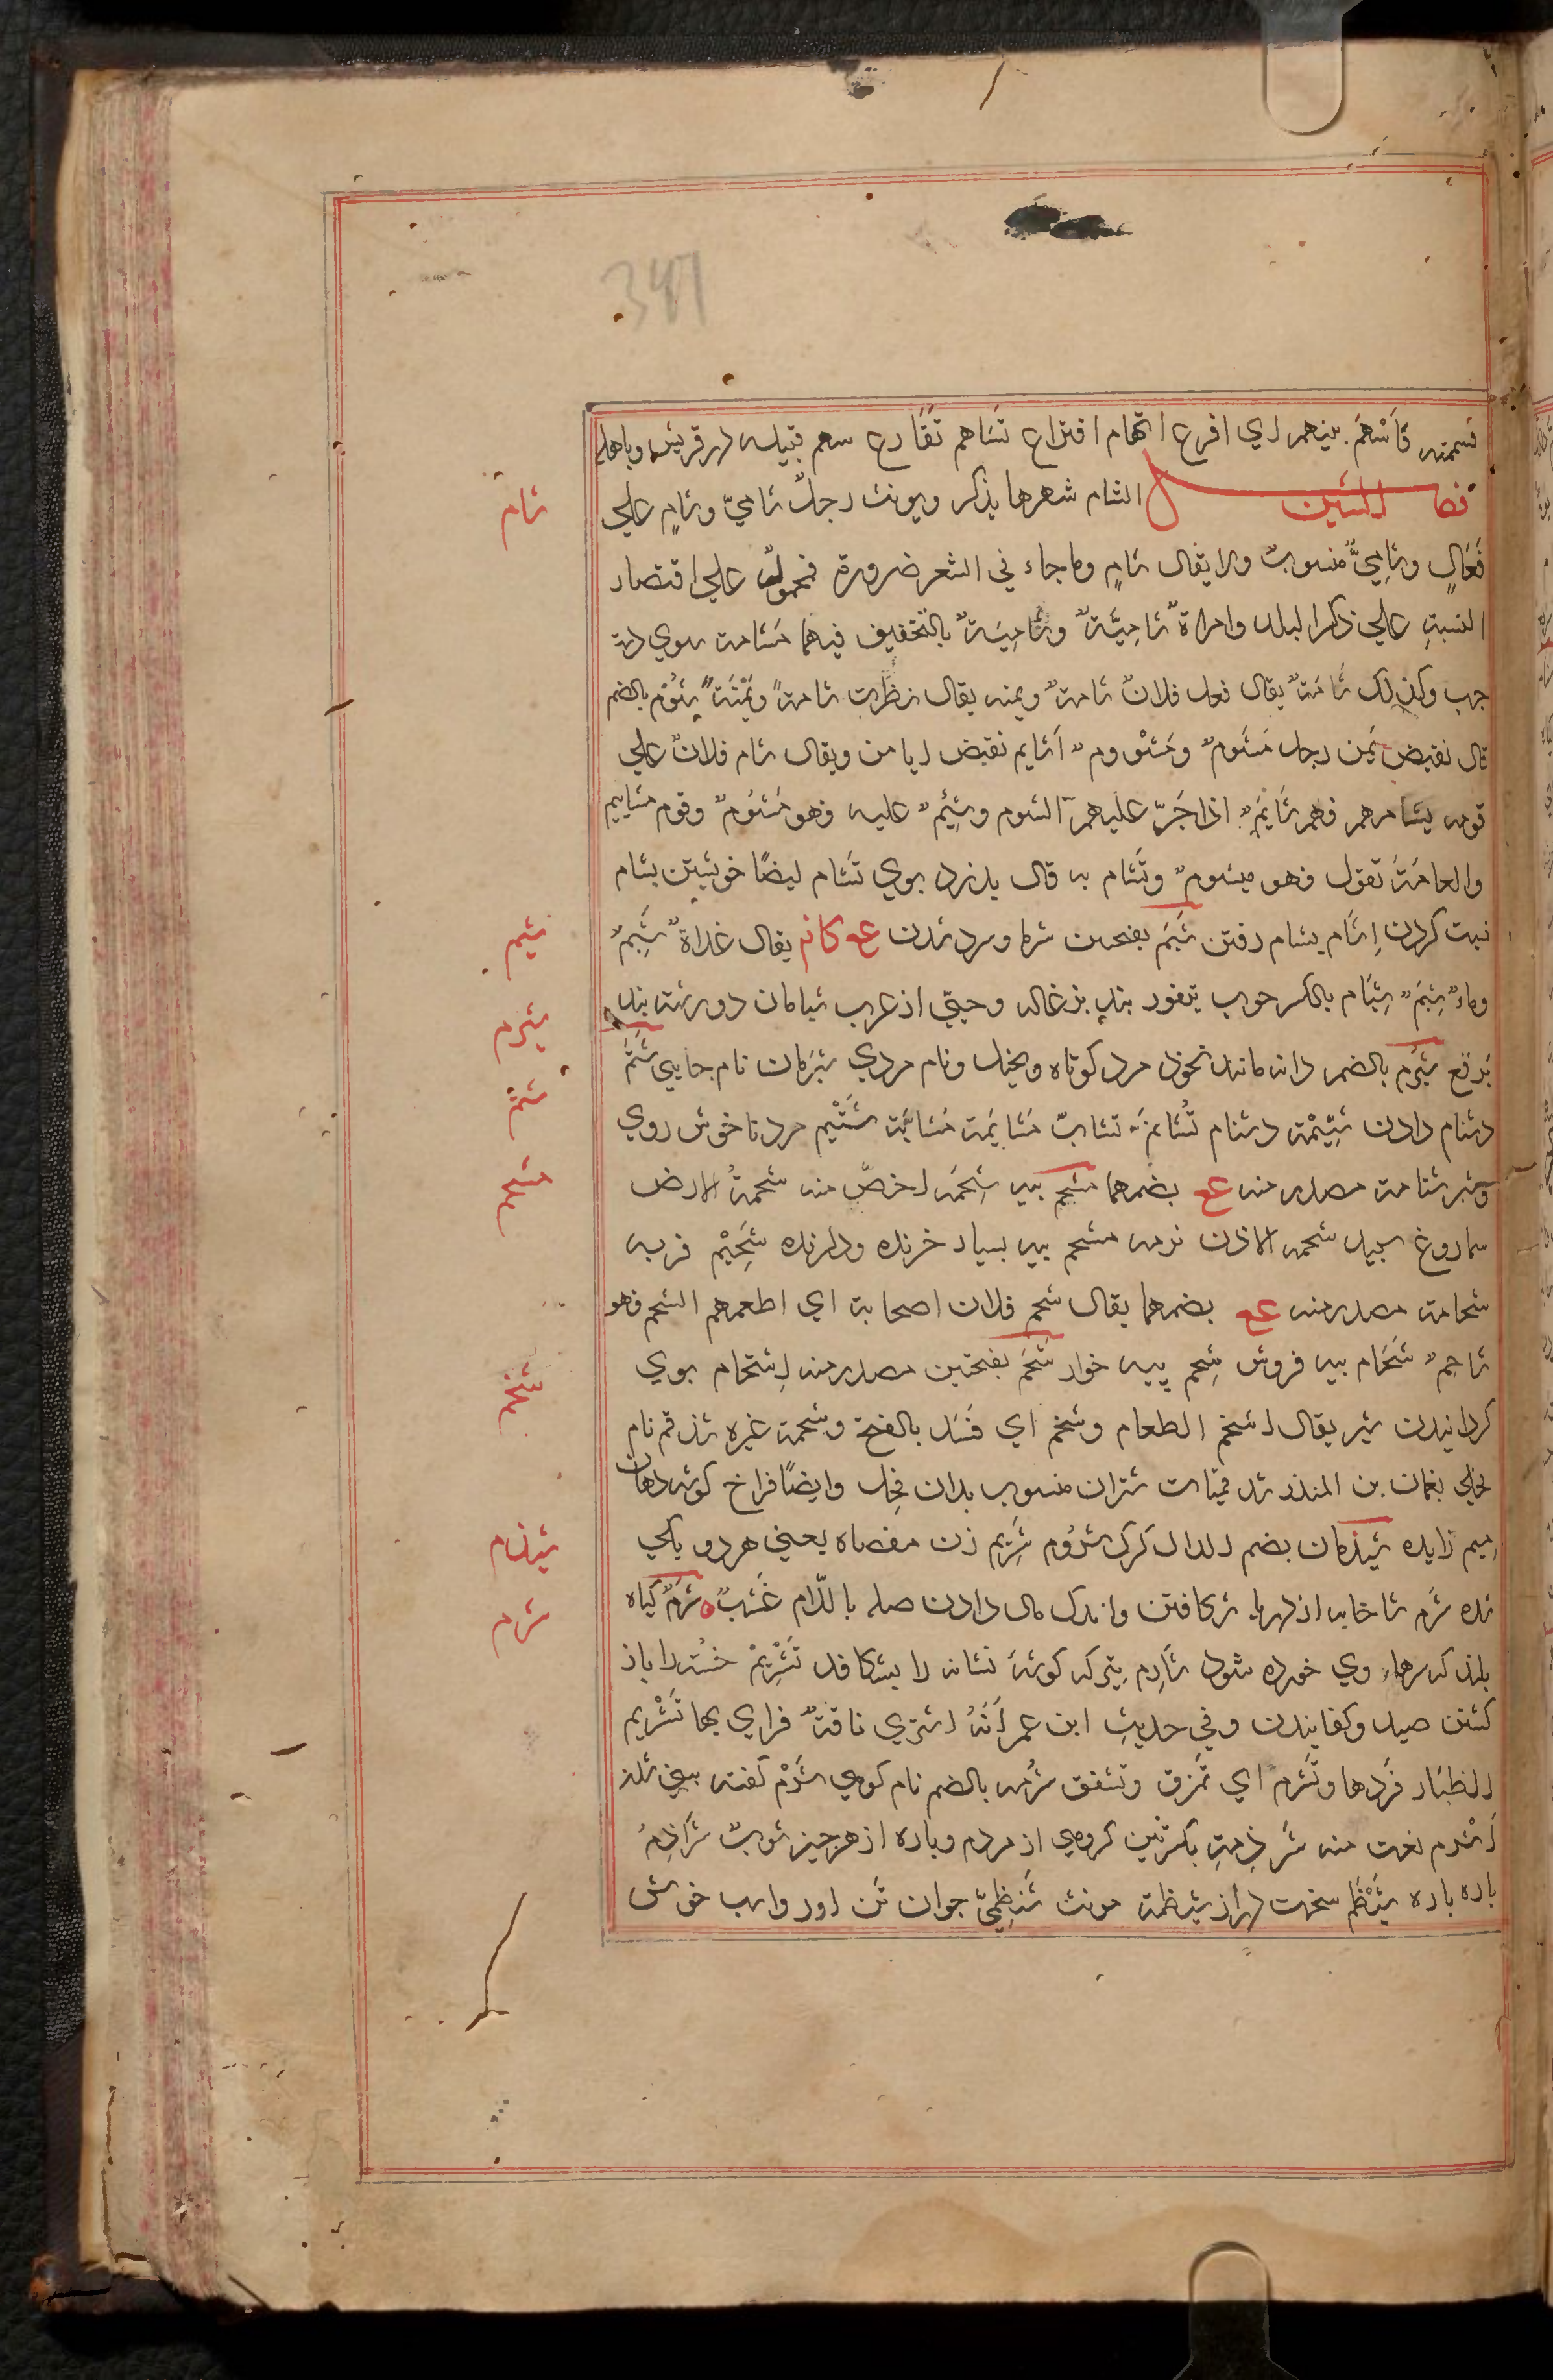 341
فسهمته فَاَسْهَمَ بينهم اي اقرع اتهام اقتراع تَسَاهم تَقَارع سهم قبيله از قريش وباهله
فصل الشين الشام شهرها يذكر ويونث رجلٌ شاميّ وشامٍ علي
شام
فَعَالٍ وشامِيٌّ منسوبٌ ولا يقال شامٍ وما جاء في الشعر ضرورة فمحمولٌ علي اقتصار
النسبةِ علي ذكر البلد وامراةٌ شاميّةٌ وشامِيَةٌ بالتخفيف فيهما مَشامة سوي دست
چپ وكذلك شامَةٌ يقال فعل فلانٌ شامةٌ ويمنه يقال نظرت شامةً ويَمْنَةً شُوْم بالضم
قال نقيض يُمن رجل مَشومٌ ومَشْوومٌ اَشايم نقيض ايامن ويقال شام فلانٌ علي
قومه يشامهم فهم شَايمٌ اذا جَرّ عليهم الشوم وشِيُمٌ عليه وهو مَشئومٌ وقوم مشاييم
والعامّةُ تقول وهو ميشومٌ وتَشام به قال بد زد بوي تَشام ايضًا خويشتن بشام
نسبت كردن اِشام بشام رفتن شَبَم بفتحين سرما وسرد شدن ع كانه يقال غداةٌ شَبِمٌ
شبم
وماءٌ شبمٌ شِبَام بالكسر چوب پتفوز بند بزغاله وحيّي از عرب شبامان دو رشته بند
برقع شُبرُم بالضم دانه مانند نخود مرد كوتاه وبخيل ونام مردي شبرمان نام جايي شَتْم
شبرم
دشنام دادن شتِيْمَة دشنام تَشاتم تشابّ مُشاتمة مُشابّة شَتْيم مرد ناخوش روي
شتم
وشير شتامة مصدر منه ع بضمهما شحم پيه شحمه اخصّ منه شحمةُ الارض
شحم
سماروغ سپيد شحمه الاذن نرمه مشحم پيه بسيار خرنده ودارنده شَحِيْم فربه
شحامة مصدر منه ع بضمهما يقال شحم فلان اصحابه اي اطعمهم الشحم فهو
شاحمٌ شَحّام پيه فروش شحِم پيه خوار شَخَم بفتحتين مصدر منه اِشخام بوي
شخم
گردانيدن شير يقال اشخم الطعام وشخم اي فَسَد بالفتح وشخمه غيره شدقم نام
فحلي نعمان بن المنذر شدقميات شتران منسوب بدان فحل وايضًا فراخ گوشه دهان
ميم زايده شَيْذُمان بضم الدال گرگ شَرُوم شَرِيم زن مفضاه يعني هردو يكي
شيذم
شده شَرم شاخابه از دريا شكافتن واندك مال دادن صله باللّام عُشبٌ شرمٌ گياه
شرم
بلند كه سرهاء وي خورده شود شَارِم تيركه گوشهٔ نشانه را بشكافد تَشْرِيْم خسته را باز
كشتن صيد وكفانيدن وفي حديثِ ابن عمر اَنَّهُ اشتري ناقةٌ فراي بها تَشْرِيم
الظئار فردها وتَشَرم اي تمزق وتشقق شُرمه بالضم نام كوهي شَرْم كفته بيني شدن
اَشْرم نعت منه شرذِمةٍ بكسرتين گروهي از مردم وپاره از هرچيز ثوبٌ شراذِمُ
پاره پاره شَيْظَم سخت دراز شيظمة مونث شيظميّ جوان تن اور واسب خوش